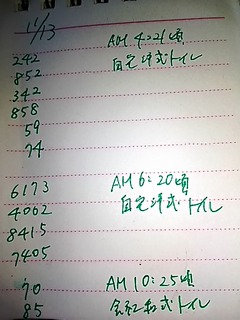 11/13
242
852
342
858
59
74
AM 4:21頃
自宅洋式トイレ
6173
4062
8415
7405
AM 6:20頃
自宅洋式トイレ
70
85
AM 10:25頃
会社和式トイレ